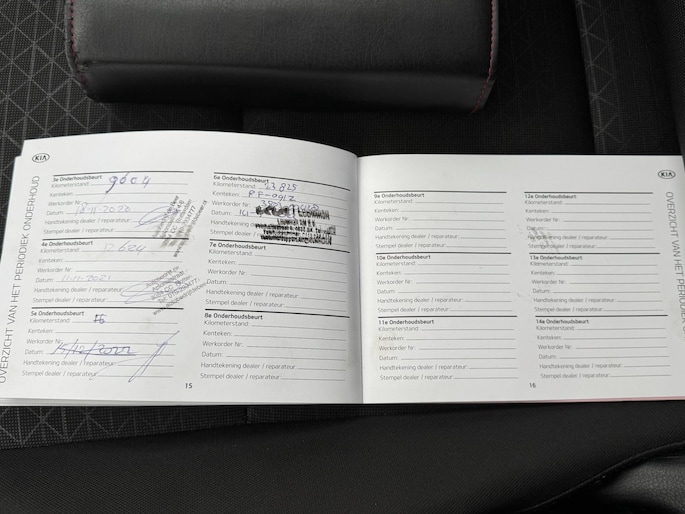 KIA
OVERZICHT VAN HET PERIODIEK ONDERHOUD
3e Onderhoudsbeurt
Kilometerstand: 9604
Kenteken:
Werkorder Nr.:
Datum: 11-2020
Handtekening dealer / reparateur:
Stempel dealer / reparateur:
4e Onderhoudsbeurt
Kilometerstand: 12624
Kenteken:
Werkorder Nr.:
Datum: 11-11-2021
Handtekening dealer / reparateur:
Stempel dealer / reparateur:
5e Onderhoudsbeurt
Kilometerstand:
Kenteken:
Werkorder Nr.:
Datum: 15/12/2022
Handtekening dealer / reparateur:
Stempel dealer / reparateur:
6e Onderhoudsbeurt
Kilometerstand: 23.825
Kenteken:
Werkorder Nr.:
Datum:
Handtekening dealer / reparateur:
Stempel dealer / reparateur:
7e Onderhoudsbeurt
Kilometerstand:
Kenteken:
Werkorder Nr.:
Datum:
Handtekening dealer / reparateur:
Stempel dealer / reparateur:
8e Onderhoudsbeurt
Kilometerstand:
Kenteken:
Werkorder Nr.:
Datum:
Handtekening dealer / reparateur:
Stempel dealer / reparateur:
15
9e Onderhoudsbeurt
Kilometerstand:
Kenteken:
Werkorder Nr.:
Datum:
Handtekening dealer / reparateur:
Stempel dealer / reparateur:
10e Onderhoudsbeurt
Kilometerstand:
Kenteken:
Werkorder Nr.:
Datum:
Handtekening dealer / reparateur:
Stempel dealer / reparateur:
11e Onderhoudsbeurt
Kilometerstand:
Kenteken:
Werkorder Nr.:
Datum:
Handtekening dealer / reparateur:
Stempel dealer / reparateur:
12e Onderhoudsbeurt
Kilometerstand:
Kenteken:
Werkorder Nr.:
Datum:
Handtekening dealer / reparateur:
Stempel dealer / reparateur:
13e Onderhoudsbeurt
Kilometerstand:
Kenteken:
Werkorder Nr.:
Datum:
Handtekening dealer / reparateur:
Stempel dealer / reparateur:
14e Onderhoudsbeurt
Kilometerstand:
Kenteken:
Werkorder Nr.:
Datum:
Handtekening dealer / reparateur:
Stempel dealer / reparateur:
16
KIA
OVERZICHT VAN HET PERIODIEK